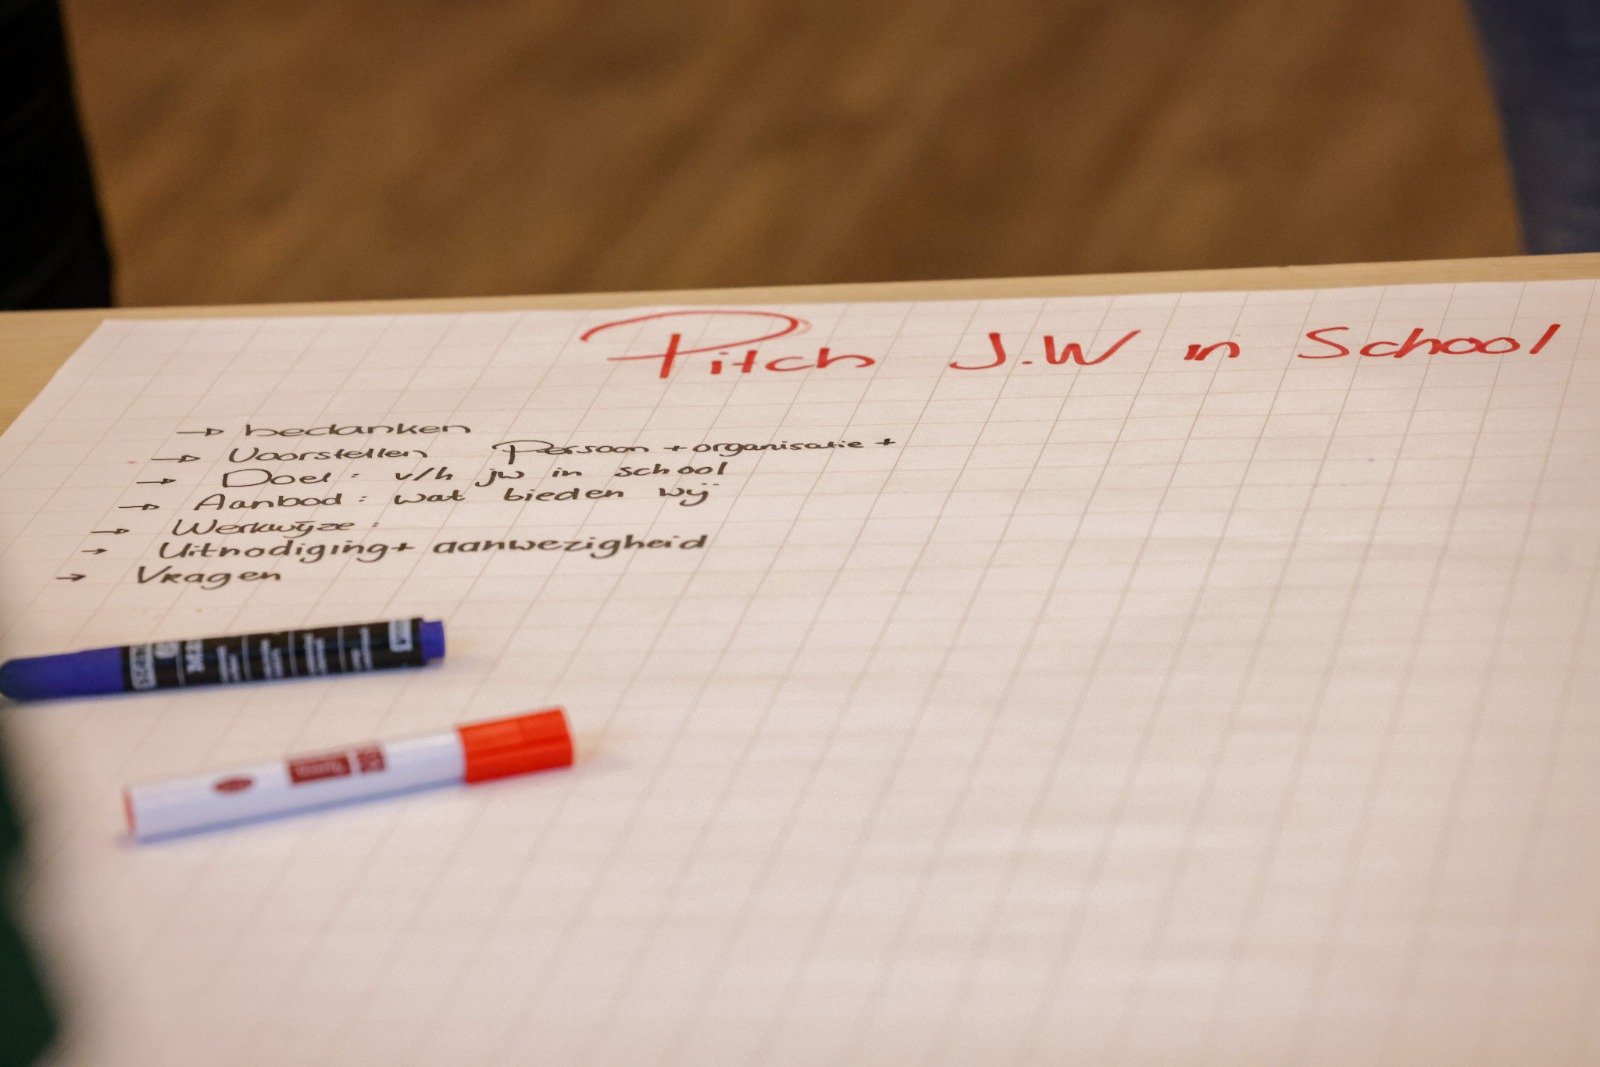 Pitch J.W in School
→ bedanken
→ Voorstellen Persoon + organisatie +
→ Doel: v/h jw in school
→ Aanbod: wat bieden wij
→ Werkwijze:
→ Uitnodiging + aanwezigheid
→ Vragen